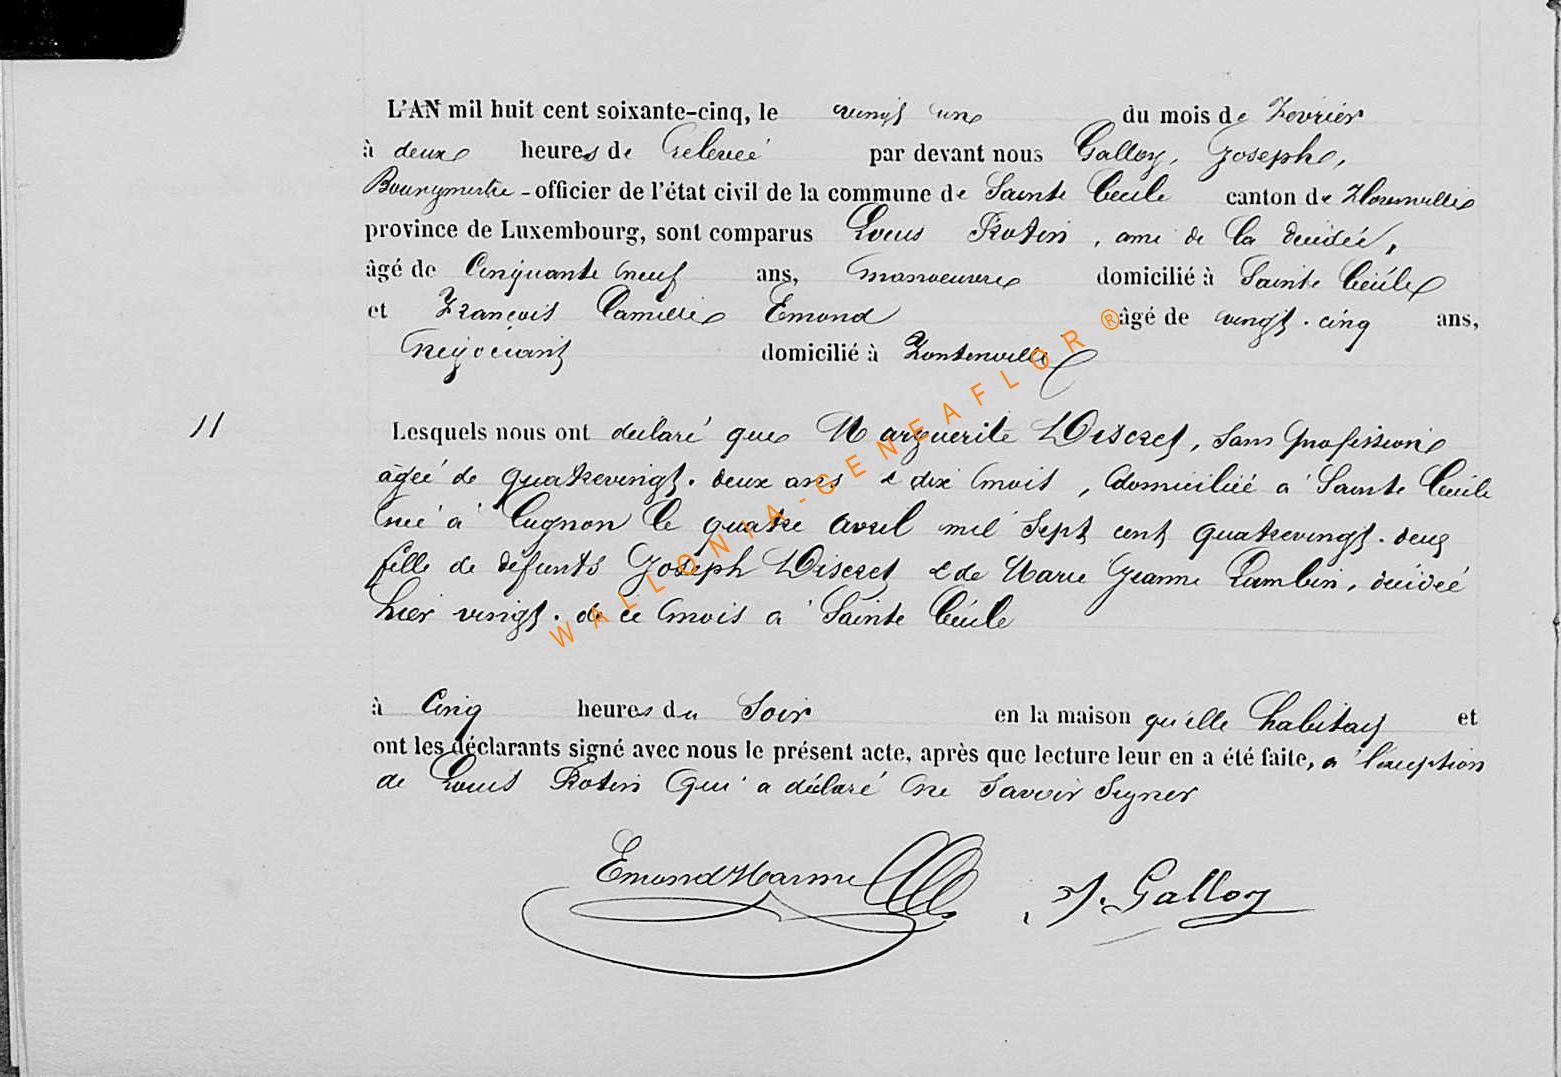 L'AN mil huit cent soixante-cinq, le vingt une du mois de Février
à deux heures de relevée par devant nous Galloy, Joseph,
Bourgmestre - officier de l'état civil de la commune de Sainte Cécile canton de Florenville
province de Luxembourg, sont comparus Louis Rotin, ami de la décidée,
âgé de Cinquante neuf ans, manoeuvre domicilié à Sainte Cécile
et François Camille Emond âgé de vingt-cinq ans,
négociant domicilié à Fontenoille
11
Lesquels nous ont déclaré que Marguerite Discret, sans profession
âgée de quatrevingt-deux ans & dix mois, domiciliée à Sainte Cécile
née à Cugnon le quatre avril mil sept cent quatrevingt-deux
fille de défunts Joseph Discret & de Marie Jeanne Lambin, décidée
hier vingt de ce mois à Sainte Cécile
à Cinq heures du Soir en la maison qu'elle habitait et
ont les déclarants signé avec nous le présent acte, après que lecture leur en a été faite, à l'exception
de Louis Rotin qui a déclaré ne savoir signer
Emond J. Galloy
WALLONIA-GENEAFLOR ®